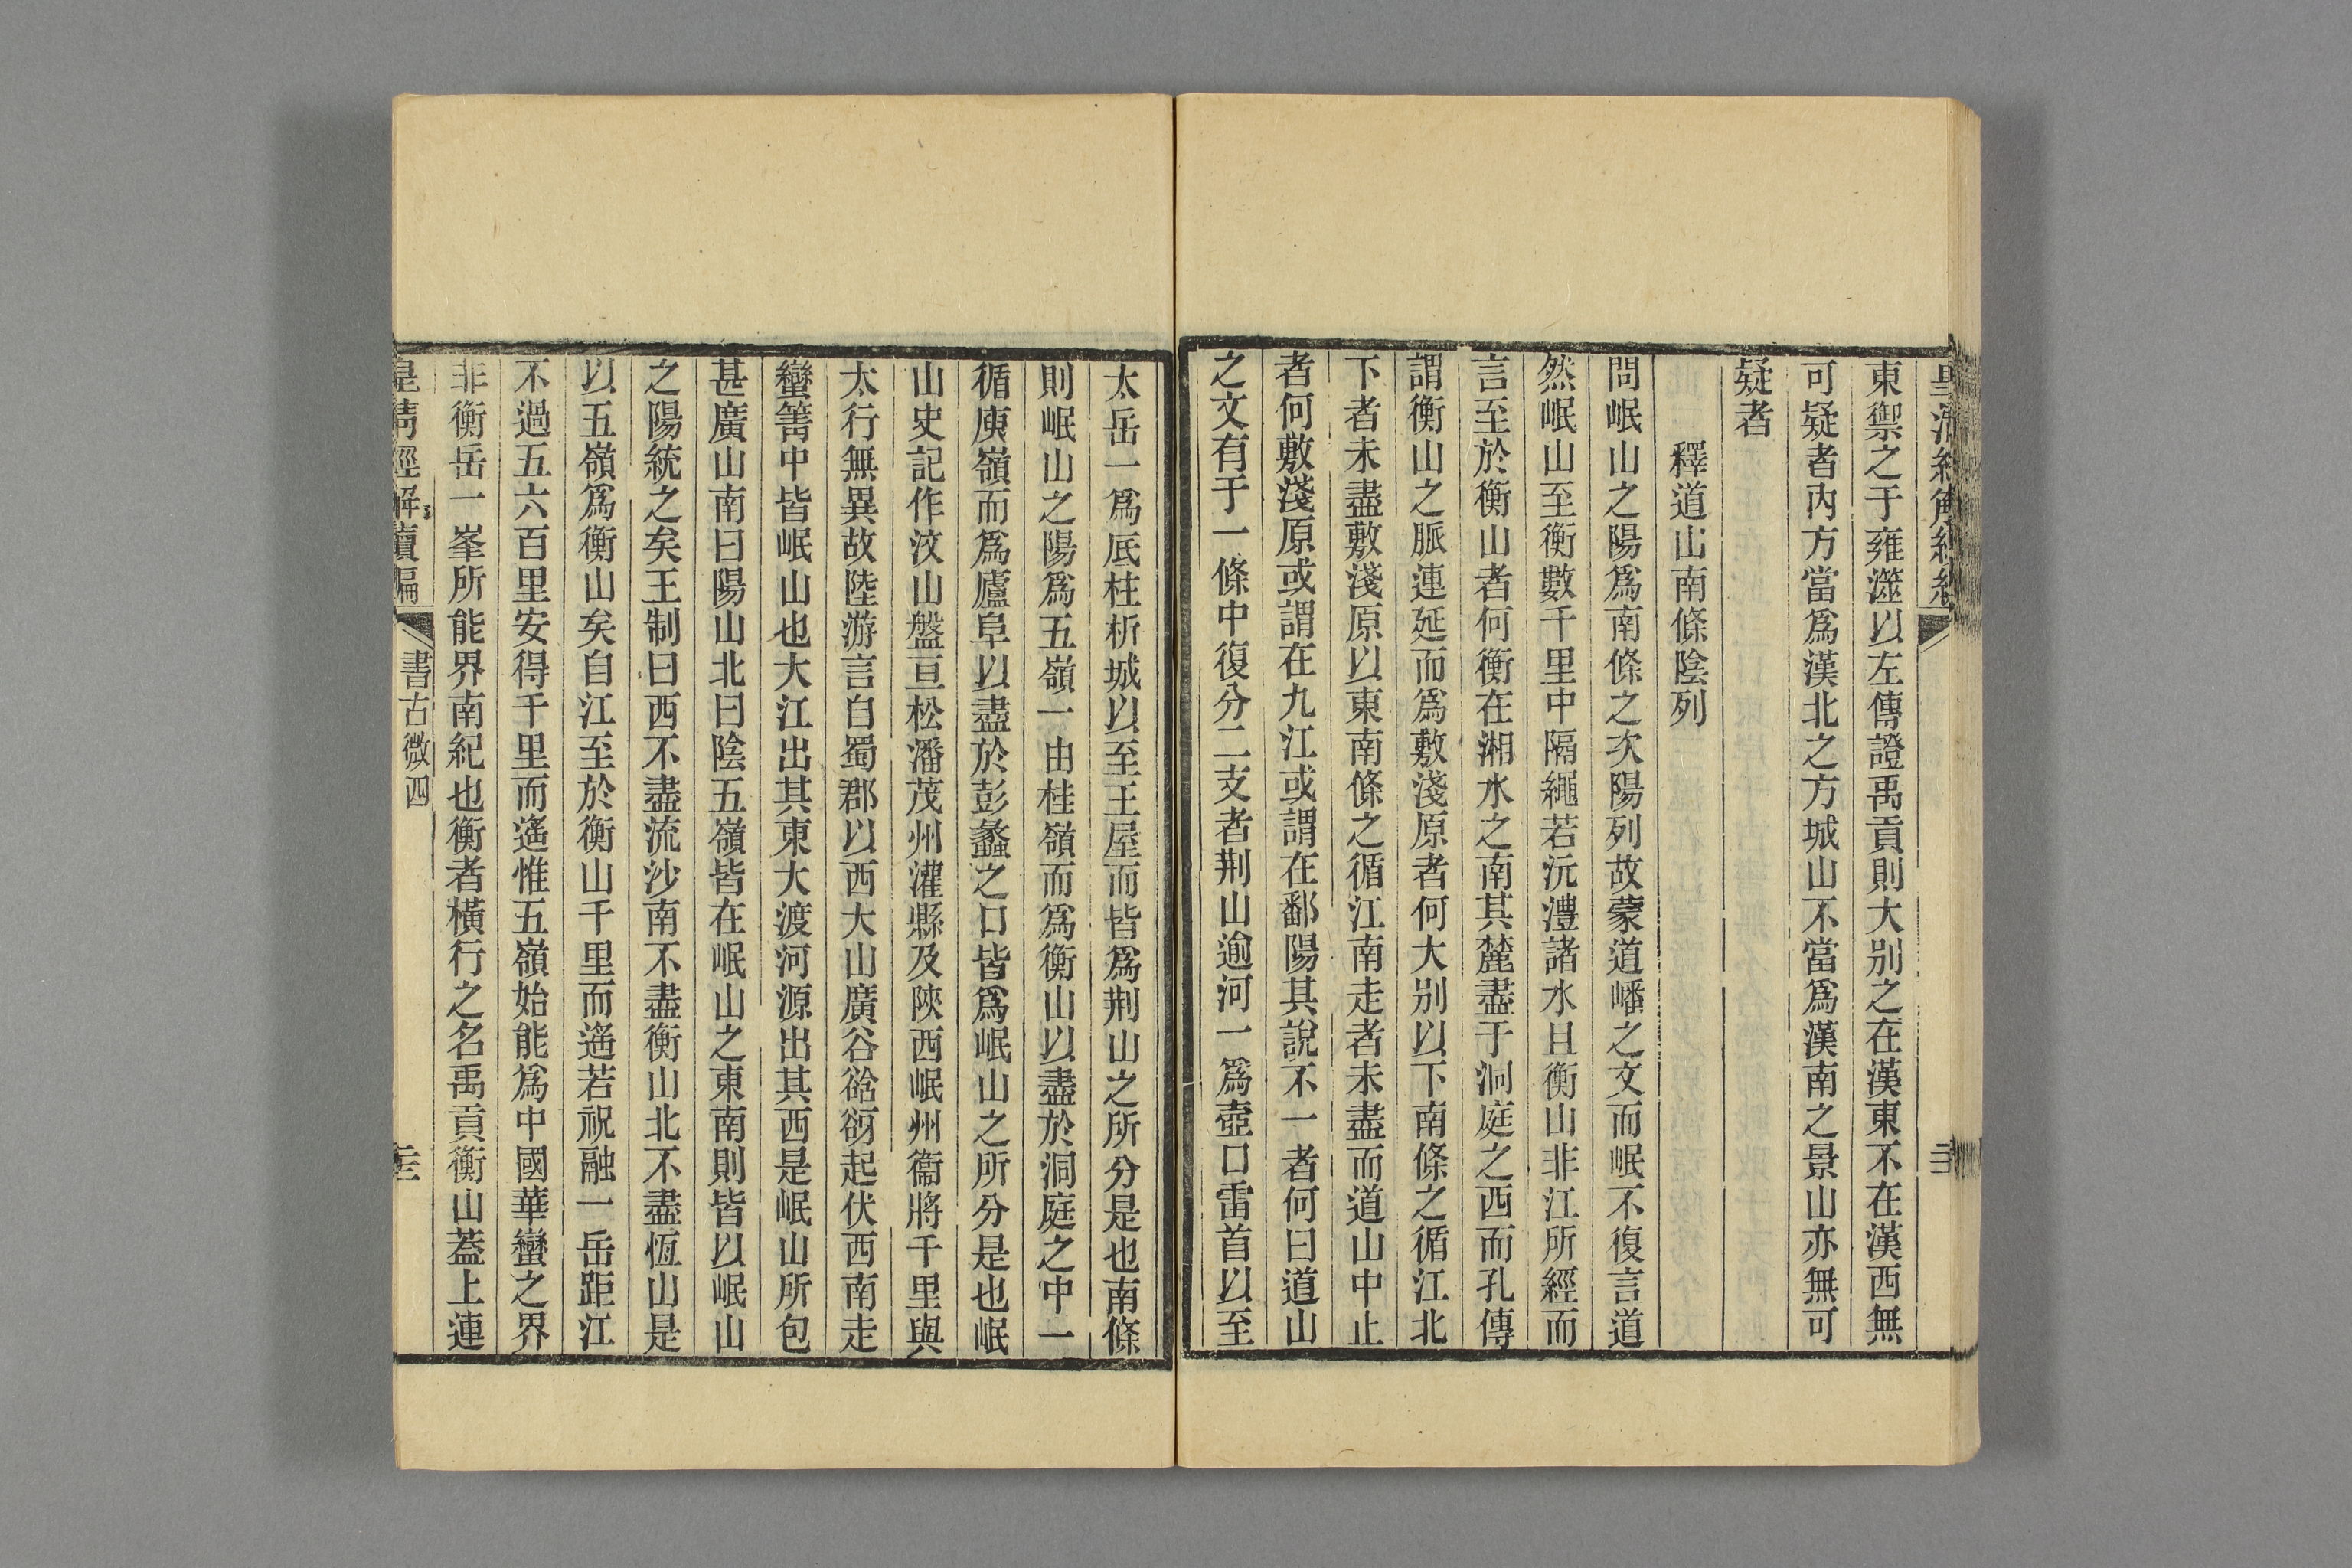 東禦之于雍澨以左傳證禹貢則大别之在漢東不在漢西無
可疑者內方當爲漢北之方城山不當爲漢南之景山亦無可
疑者
釋道山南條陰列
問岷山之陽爲南條之次陽列故蒙道嶓之文而岷不復言道
然岷山至衡數千里中隔繩若沅澧諸水且衡山非江所經而
言至於衡山者何衡在湘水之南其麓盡于洞庭之西而孔傳
謂衡山之脈連延而爲敷淺原者何大别以下南條之循江北
下者未盡敷淺原以東南條之循江南走者未盡而道山中止
者何敷淺原或謂在九江或謂在鄱陽其說不一者何曰道山
之文有于一條中復分二支者荆山逾河一爲壺口雷首以至
太岳一爲厎柱析城以至王屋而皆爲荆山之所分是也南條
則岷山之陽爲五嶺一由桂嶺而爲衡山以盡於洞庭之中一
循庾嶺而爲廬阜以盡於彭蠡之口皆爲岷山之所分是也岷
山史記作汶山盤亘松潘茂州灌縣及陝西岷州衞將千里與
太行無異故陸游言自蜀郡以西大山廣谷谽谺起伏西南走
蠻箐中皆岷山也大江出其東大渡河源出其西是岷山所包
甚廣山南曰陽山北曰陰五嶺皆在岷山之東南則皆以岷山
之陽統之矣王制曰西不盡流沙南不盡衡山北不盡恆山是
以五嶺爲衡山矣自江至於衡山千里而遙若祝融一岳距江
不過五六百里安得千里而遙惟五嶺始能爲中國華蠻之界
非衡岳一峯所能界南紀也衡者橫行之名禹貢衡山蓋上連
皇清經解續編 書古微四